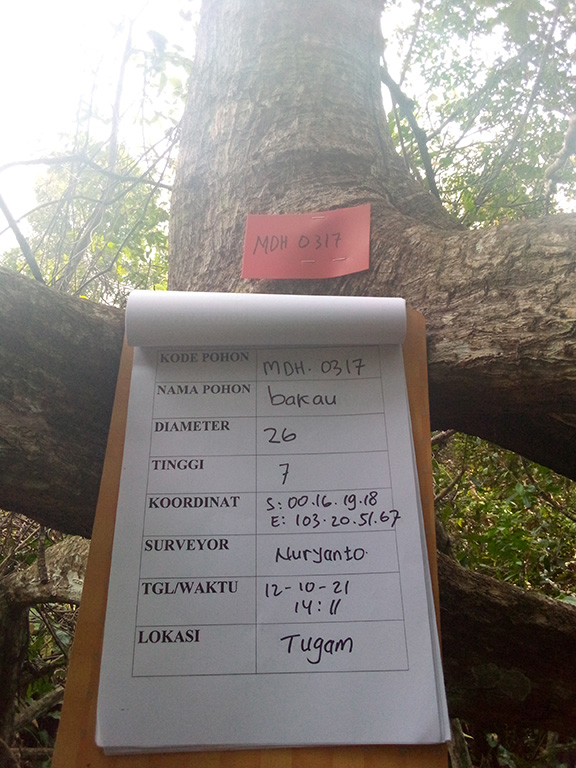 MDH 0317
KODE POHON MDH. 0317
NAMA POHON bakau
DIAMETER 26
TINGGI 7
KOORDINAT S: 00.16.19.18
E: 103.20.51.67
SURVEYOR Nuryanto.
TGL/WAKTU 12-10-21
14:11
LOKASI Tugam